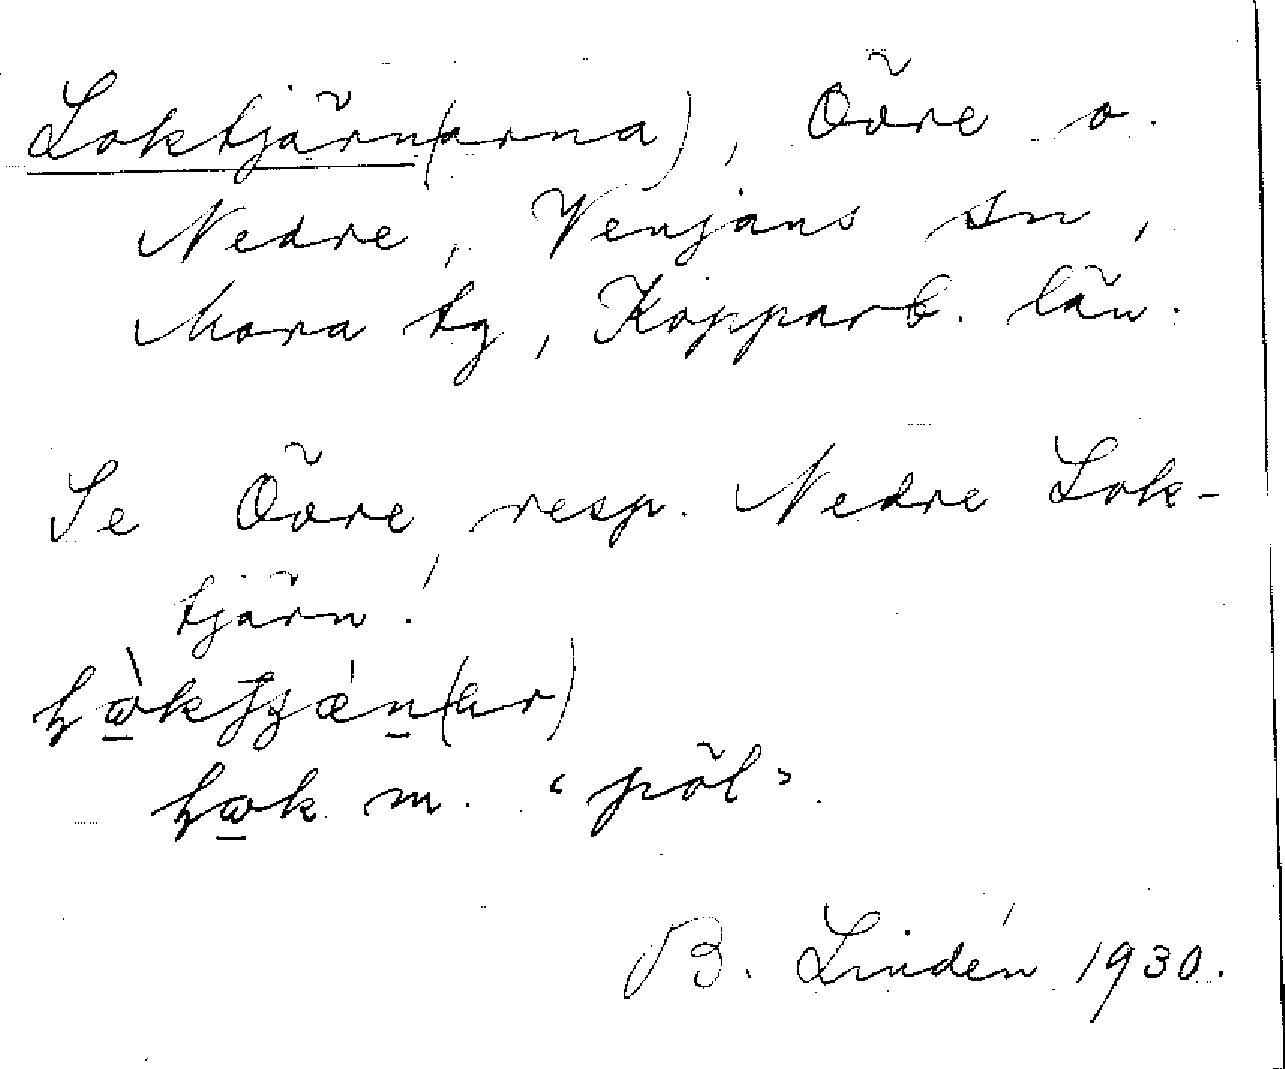 Loktjärn(arna), Övre o.
Nedre, Venjans sn,
Mora tg, Kopparb. län.
Se Övre, resp. Nedre Lok-
tjärn!
m. "pöl".
B. Lindén 1930.